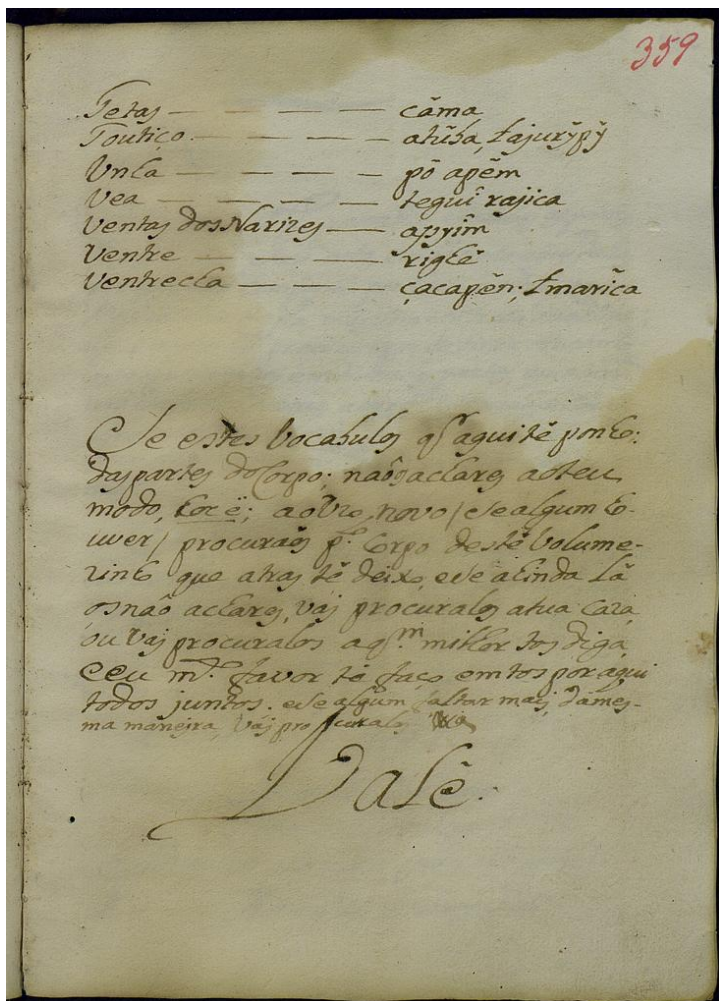 359
Tetas — — — — — cãma
Toutiço — — — — atũba, t ajurỹpỹ
Vnha — — — — põ apẽm
Vea — — — — teguî rajica
Ventas dos Narizes — apyîm
Ventre — — — righê
Ventrecha — — — çacapẽn; t mariça
Se estes Vocabulos q̃ aqui tê ponho:
das partes do Corpo; naõ os achares ao teu
modo,
novo / se algum ho-
uver / procuraõs p.lo Corpo destê Volume-
zinho que atras tê deixo, e se ainda lâ
os naõ achares, vaj procuralos a tua Caza
ou Vaj procuralos a q.m milhor tos diga,
e eu m.to favor tê faço em tos por aqui
todos juntos. e se algum faltar mais, da mes-
ma maneira, Vaj procuralo
Valê.